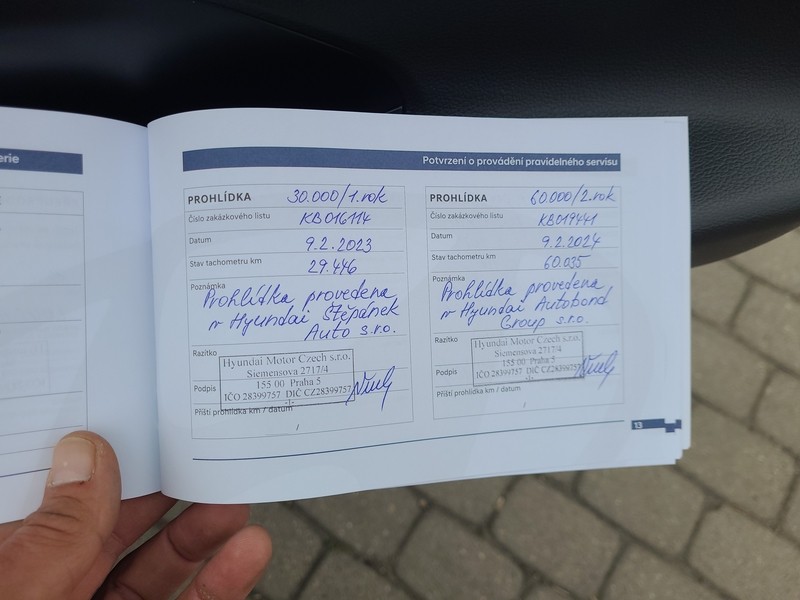 erie
Potvrzení o provádění pravidelného servisu
PROHLÍDKA 30.000/1.rok
Číslo zakázkového listu KB016114
Datum 9.2.2023
Stav tachometru km 29.446
Poznámka
Prohlídka provedena
v Hyundai Štěpánek
Auto s.r.o.
Razítko
Hyundai Motor Czech s.r.o.
Siemensova 2717/4
155 00 Praha 5
IČO 28399757 DIČ CZ28399757
-1-
Podpis
Příští prohlídka km / datum
/
PROHLÍDKA 60.000/2.rok
Číslo zakázkového listu KB019441
Datum 9.2.2024
Stav tachometru km 60.035
Poznámka
Prohlídka provedena
v Hyundai Autobond
Group s.r.o.
Razítko
Hyundai Motor Czech s.r.o.
Siemensova 2717/4
155 00 Praha 5
IČO 28399757 DIČ CZ28399757
-1-
Podpis
Příští prohlídka km / datum
/
13